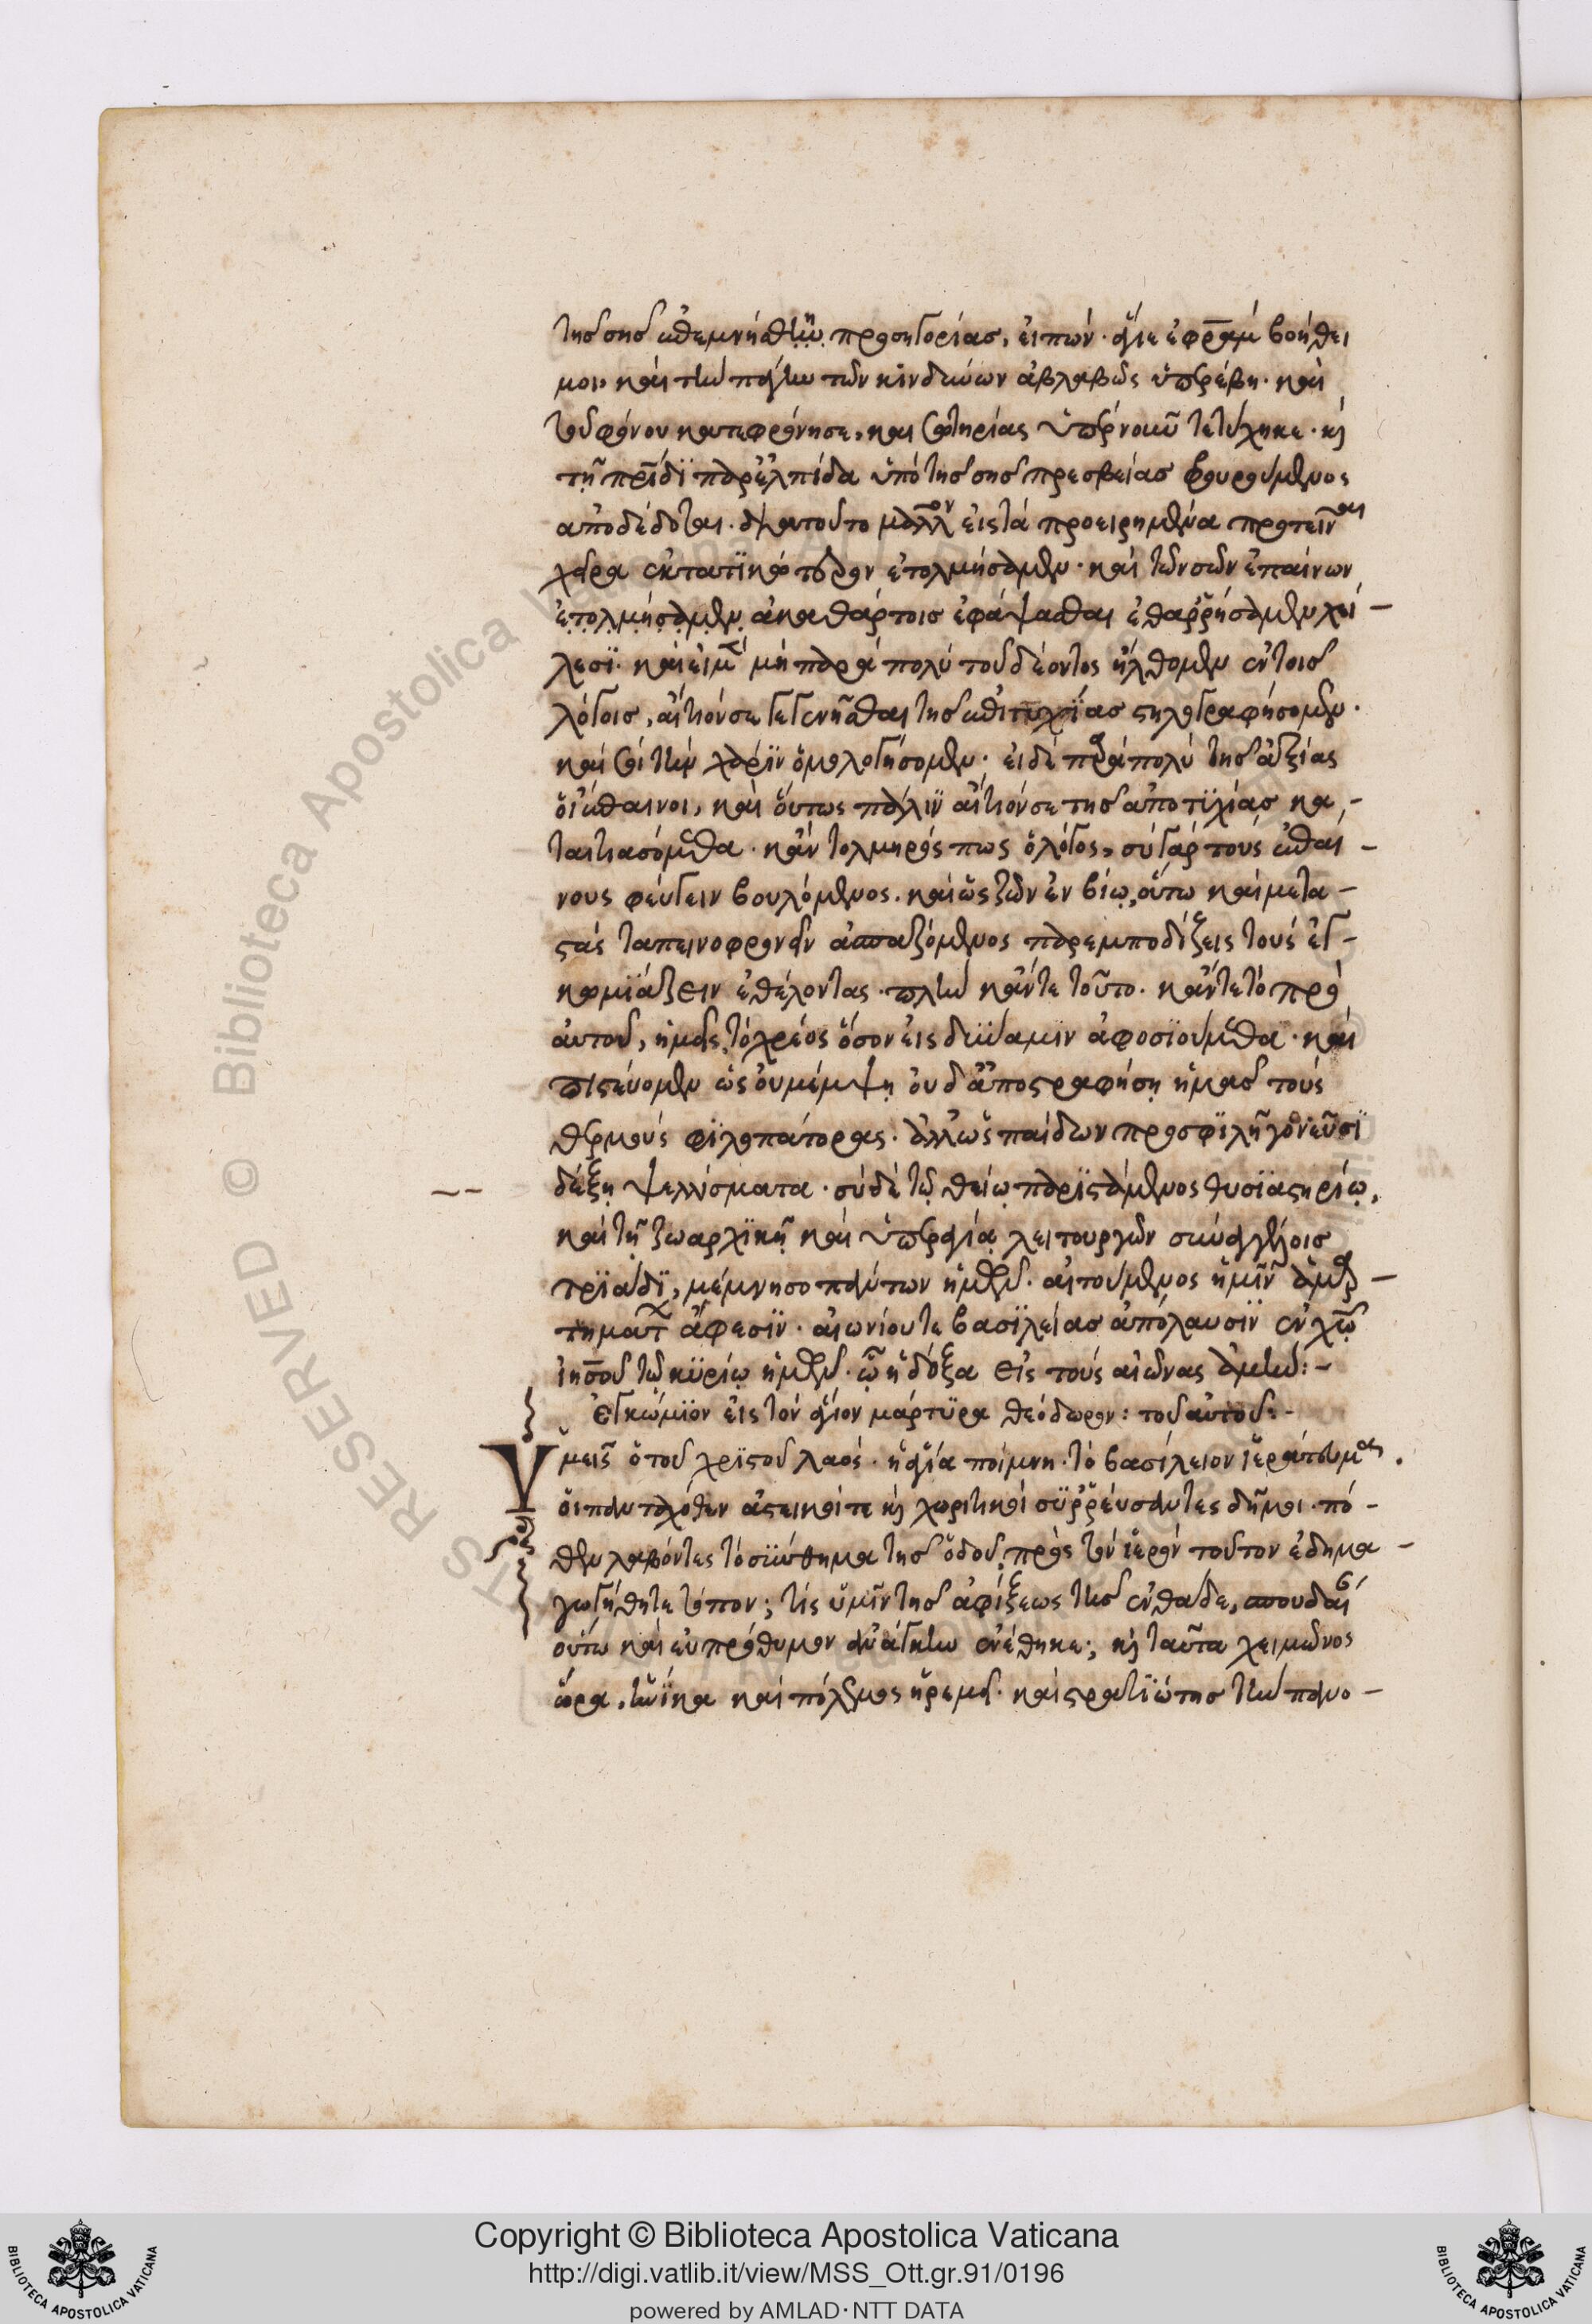 τῆς σῆς ἐπεμνήσθη προσηγορίας, εἰπών· ἅγιε ἐφραίμ βοήθει
μοι, καὶ τὴν πάγην τῶν κινδύνων ἀβλαβῶς ὑπερέβη· καὶ
τοῦ φόνου κατεφρόνησε, καὶ σωτηρίας ὑπὲρ νοῦν τετύχηκε· καὶ
τῇ πρίδϊ παρ' ἐλπίδα ὑπὸ τῆς σῆς πρεσβείας φρουρούμενος
ἀποδέδοται· διὰ τοῦτο μᾶλλον εἰς τὰ προειρημένα προτεῖναι
χεῖρα ἐτολμήσαμεν· καὶ τῶν σῶν ἐπαίνων
ἐτολμήσαμεν ἀκαθάρτοις ἐφάψασθαι ἐθαρρήσαμεν χεί-
λεσϊ· καὶ εἰ μὲν μὴ παρὰ πολύ τοῦ δέοντος ἤλθομεν ἐν τοῖς
λόγοις, αἴτιόν σε γεγενῆσθαι τῆς ἐπιτυχΐας στηλογραφήσομεν·
καὶ σοὶ τὴν χάρϊν ὁμολογήσομεν· εἰ δὲ παρὰ πολύ τῆς ἀξίας
οἱ ἔπαινοι, καὶ οὕτως πάλϊν αἴτιόν σε τῆς ἀποτϋχίας κα-
ταιτιασόμεθα· κἂν τολμηρός πως ὁ λόγος, σὺ γάρ τοὺς ἐπαί-
νους φεύγειν βουλόμενος· καὶ ὡς ζῶν ἐν βίῳ, οὕτω καὶ μετα-
στάς ταπεινοφρονεῖν ἀσπαζόμενος παρεμποδίζεις τοὺς ἐγ-
κωμϊάζειν ἐθέλοντας· πλὴν κἄν τε τοῦτο· κἄν τε τὸ πρὸ
αὐτοῦ, ἡμεῖς τὸ χρέος ὅσον εἰς δύναμϊν ἀφοσϊούμεθα· καὶ
πιστεύομεν ὡς οὐ μέμψῃ οὐδ' ἀποστραφήσῃ ἡμᾶς τοὺς
θερμοὺς φϊλοπάτορας· ἀλλ' ὡς παίδων προσφϊλῆ γονεῦσϊ
δέξῃ ψελλίσματα· σὺ δὲ τῷ θείῳ παρϊστάμενος θυσϊαστηρίῳ,
καὶ τῇ ζωαρχϊκῇ καὶ ὑπεραγίᾳ λειτουργῶν σὺν ἀγγέλοις
τρϊάδϊ, μέμνησο πάντων ἡμῶν· αἰτούμενος ἡμῖν ἁμαρ-
τημάτων ἄφεσϊν· αἰωνίου τε βασϊλείας ἀπόλαυσϊν ἐν χῷ
ἰησοῦ τῷ κϋρίῳ ἡμῶν· ᾧ ἡ δόξα εἰς τοὺς αἰῶνας ἀμήν:-
ἐγκώμϊον εἰς τὸν ἅγιον μάρτϋρα θεόδωρον: τοῦ αὐτοῦ:-
Ὑμεῖς ὁ τοῦ χρϊστοῦ λαός· ἡ ἁγία ποίμνη· τὸ βασίλειον ἱεράτευμα.
οἱ πανταχόθεν ἀστικοί τε καὶ χωριτικοί σϋρρεύσαντες δῆμοι· πό-
θεν λαβόντες τὸ σύνθημα τῆς ὁδοῦ, πρὸς τὸν ἱερόν τοῦτον ἐδημα-
γωγήθητε τόπον; τίς ὑμῖν τῆς ἀφίξεως τῆς ἐνθάδε, σπουδαί
οὕτω καὶ εὐπρόθυμον ἀνάγκην ἐνέθηκε; καὶ ταῦτα χειμῶνος
ὥρα, ἡνίκα καὶ πόλεμος ἠρεμεῖ· καὶ στρατϊώτης τὴν πανο-